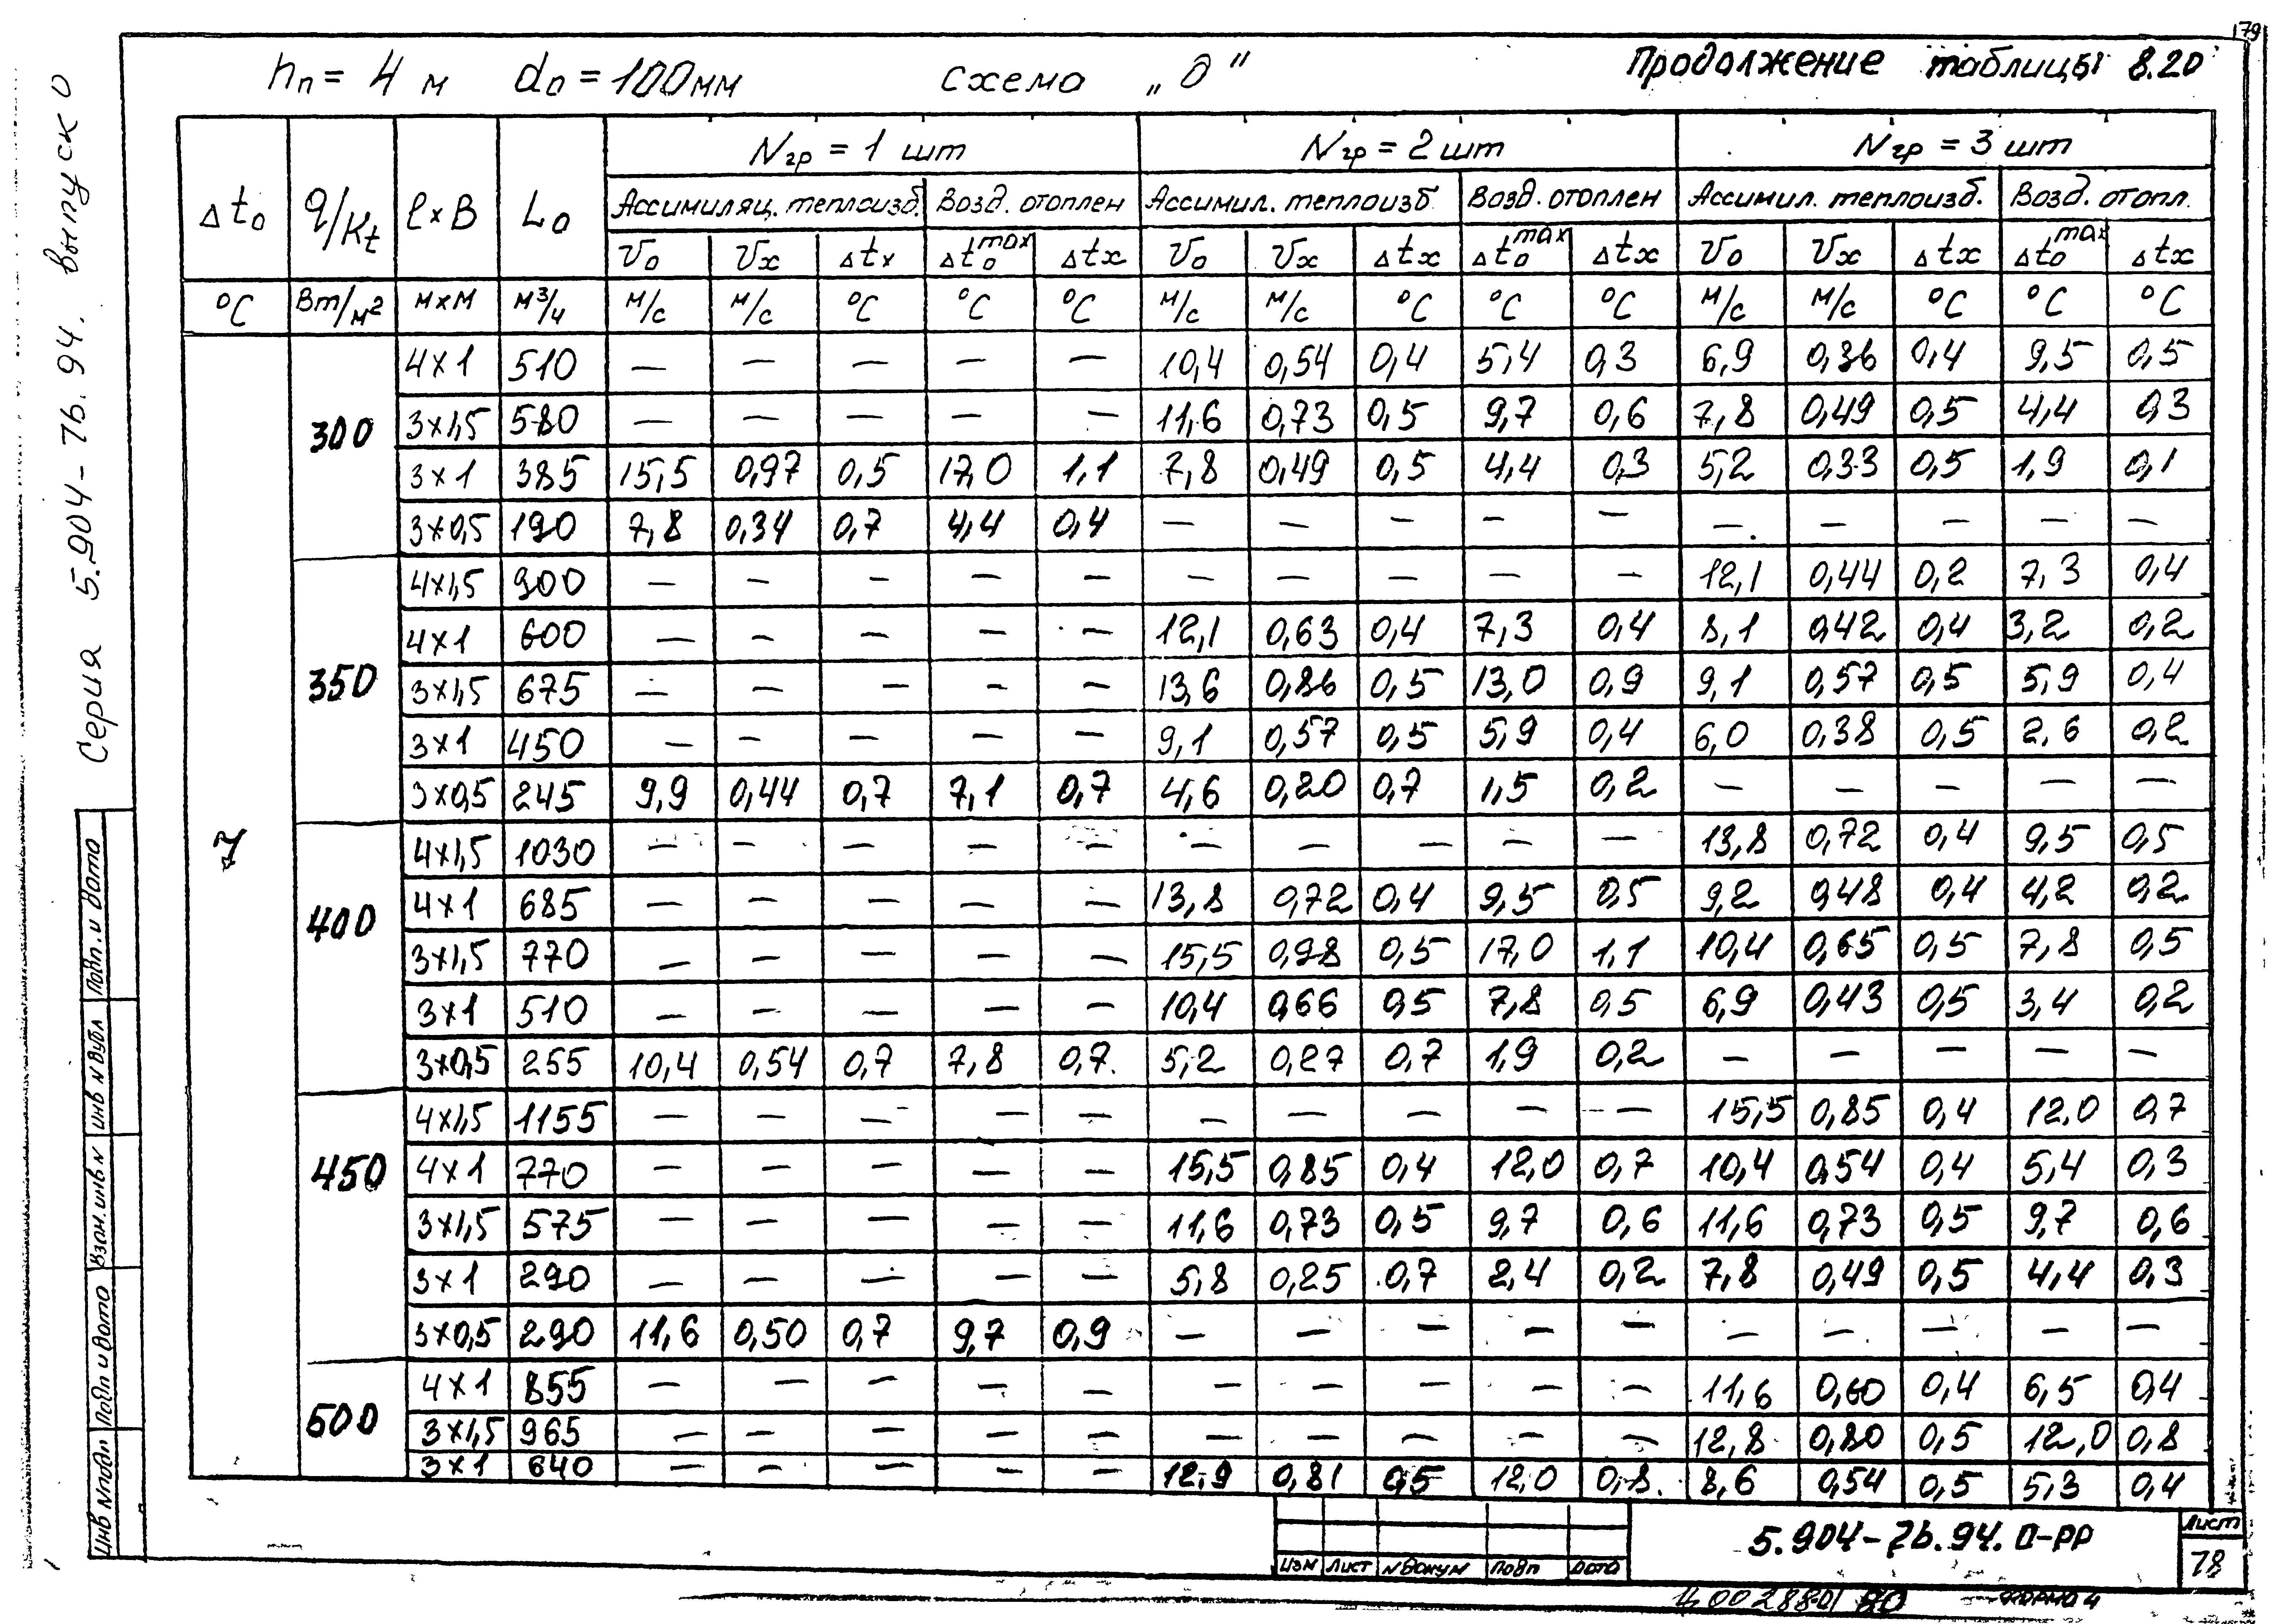 79
hп = 4 м   dо = 100мм   схема „д”   Продолжение таблицы 8.20
Серия 5.904-7в.94. выпуск 0
Δtо | q/Kt | ℓ×В | Lо | Nгр = 1 шт | Nгр = 2 шт | Nгр = 3 шт
Ассимиляц. теплоизб. | Возд. отоплен | Ассимил. теплоизб | Возд. отоплен | Ассимил. теплоизб. | Возд. отопл.
Vо | Vх | Δtх | Δtо max | Δtх | Vо | Vх | Δtх | Δtо max | Δtх | Vо | Vх | Δtх | Δtо max | Δtх
°С | Вт/м² | м×м | м³/ч | м/с | м/с | °С | °С | °С | м/с | м/с | °С | °С | °С | м/с | м/с | °С | °С | °С
7 | 300 | 4×1 | 510 | — | — | — | — | — | 10,4 | 0,54 | 0,4 | 5,4 | 0,3 | 6,9 | 0,36 | 0,4 | 9,5 | 0,5
3×1,5 | 580 | — | — | — | — | — | 11,6 | 0,73 | 0,5 | 9,7 | 0,6 | 7,8 | 0,49 | 0,5 | 4,4 | 0,3
3×1 | 385 | 15,5 | 0,97 | 0,5 | 17,0 | 1,1 | 7,8 | 0,49 | 0,5 | 4,4 | 0,3 | 5,2 | 0,33 | 0,5 | 1,9 | 0,1
3×0,5 | 190 | 7,8 | 0,34 | 0,7 | 4,4 | 0,4 | — | — | — | — | — | — | — | — | — | —
350 | 4×1,5 | 900 | — | — | — | — | — | — | — | — | — | — | 12,1 | 0,44 | 0,2 | 7,3 | 0,4
4×1 | 600 | — | — | — | — | — | 12,1 | 0,63 | 0,4 | 7,3 | 0,4 | 8,1 | 0,42 | 0,4 | 3,2 | 0,2
3×1,5 | 675 | — | — | — | — | — | 13,6 | 0,86 | 0,5 | 13,0 | 0,9 | 9,1 | 0,57 | 0,5 | 5,9 | 0,4
3×1 | 450 | — | — | — | — | — | 9,1 | 0,57 | 0,5 | 5,9 | 0,4 | 6,0 | 0,38 | 0,5 | 2,6 | 0,2
3×0,5 | 245 | 9,9 | 0,44 | 0,7 | 7,1 | 0,7 | 4,6 | 0,20 | 0,7 | 1,5 | 0,2 | — | — | — | — | —
400 | 4×1,5 | 1030 | — | — | — | — | — | — | — | — | — | — | 13,8 | 0,72 | 0,4 | 9,5 | 0,5
4×1 | 685 | — | — | — | — | — | 13,8 | 0,72 | 0,4 | 9,5 | 0,5 | 9,2 | 0,48 | 0,4 | 4,2 | 0,2
3×1,5 | 770 | — | — | — | — | — | 15,5 | 0,98 | 0,5 | 17,0 | 1,1 | 10,4 | 0,65 | 0,5 | 7,8 | 0,5
3×1 | 510 | — | — | — | — | — | 10,4 | 0,66 | 0,5 | 7,8 | 0,5 | 6,9 | 0,43 | 0,5 | 3,4 | 0,2
3×0,5 | 255 | 10,4 | 0,54 | 0,7 | 7,8 | 0,7 | 5,2 | 0,27 | 0,7 | 1,9 | 0,2 | — | — | — | — | —
450 | 4×1,5 | 1155 | — | — | — | — | — | — | — | — | — | — | 15,5 | 0,85 | 0,4 | 12,0 | 0,7
4×1 | 770 | — | — | — | — | — | 15,5 | 0,85 | 0,4 | 12,0 | 0,7 | 10,4 | 0,54 | 0,4 | 5,4 | 0,3
3×1,5 | 575 | — | — | — | — | — | 11,6 | 0,73 | 0,5 | 9,7 | 0,6 | 11,6 | 0,73 | 0,5 | 9,7 | 0,6
3×1 | 290 | — | — | — | — | — | 5,8 | 0,25 | 0,7 | 2,4 | 0,2 | 7,8 | 0,49 | 0,5 | 4,4 | 0,3
3×0,5 | 290 | 11,6 | 0,50 | 0,7 | 9,7 | 0,9 | — | — | — | — | — | — | — | — | — | —
500 | 4×1 | 855 | — | — | — | — | — | — | — | — | — | — | 11,6 | 0,60 | 0,4 | 6,5 | 0,4
3×1,5 | 965 | — | — | — | — | — | — | — | — | — | — | 12,8 | 0,80 | 0,5 | 12,0 | 0,8
3×1 | 640 | — | — | — | — | — | 12,9 | 0,81 | 0,5 | 12,0 | 0,8 | 8,6 | 0,54 | 0,5 | 5,3 | 0,4
Инв Nподл | Подп и дата | Взам.инв N | инв N дубл | Подп. и дата
Изм | Лист | N докум | Подп | Дата
5.904-7в.94.0-РР
Лист
78
Ц00288-01 80
ФОРМА 4